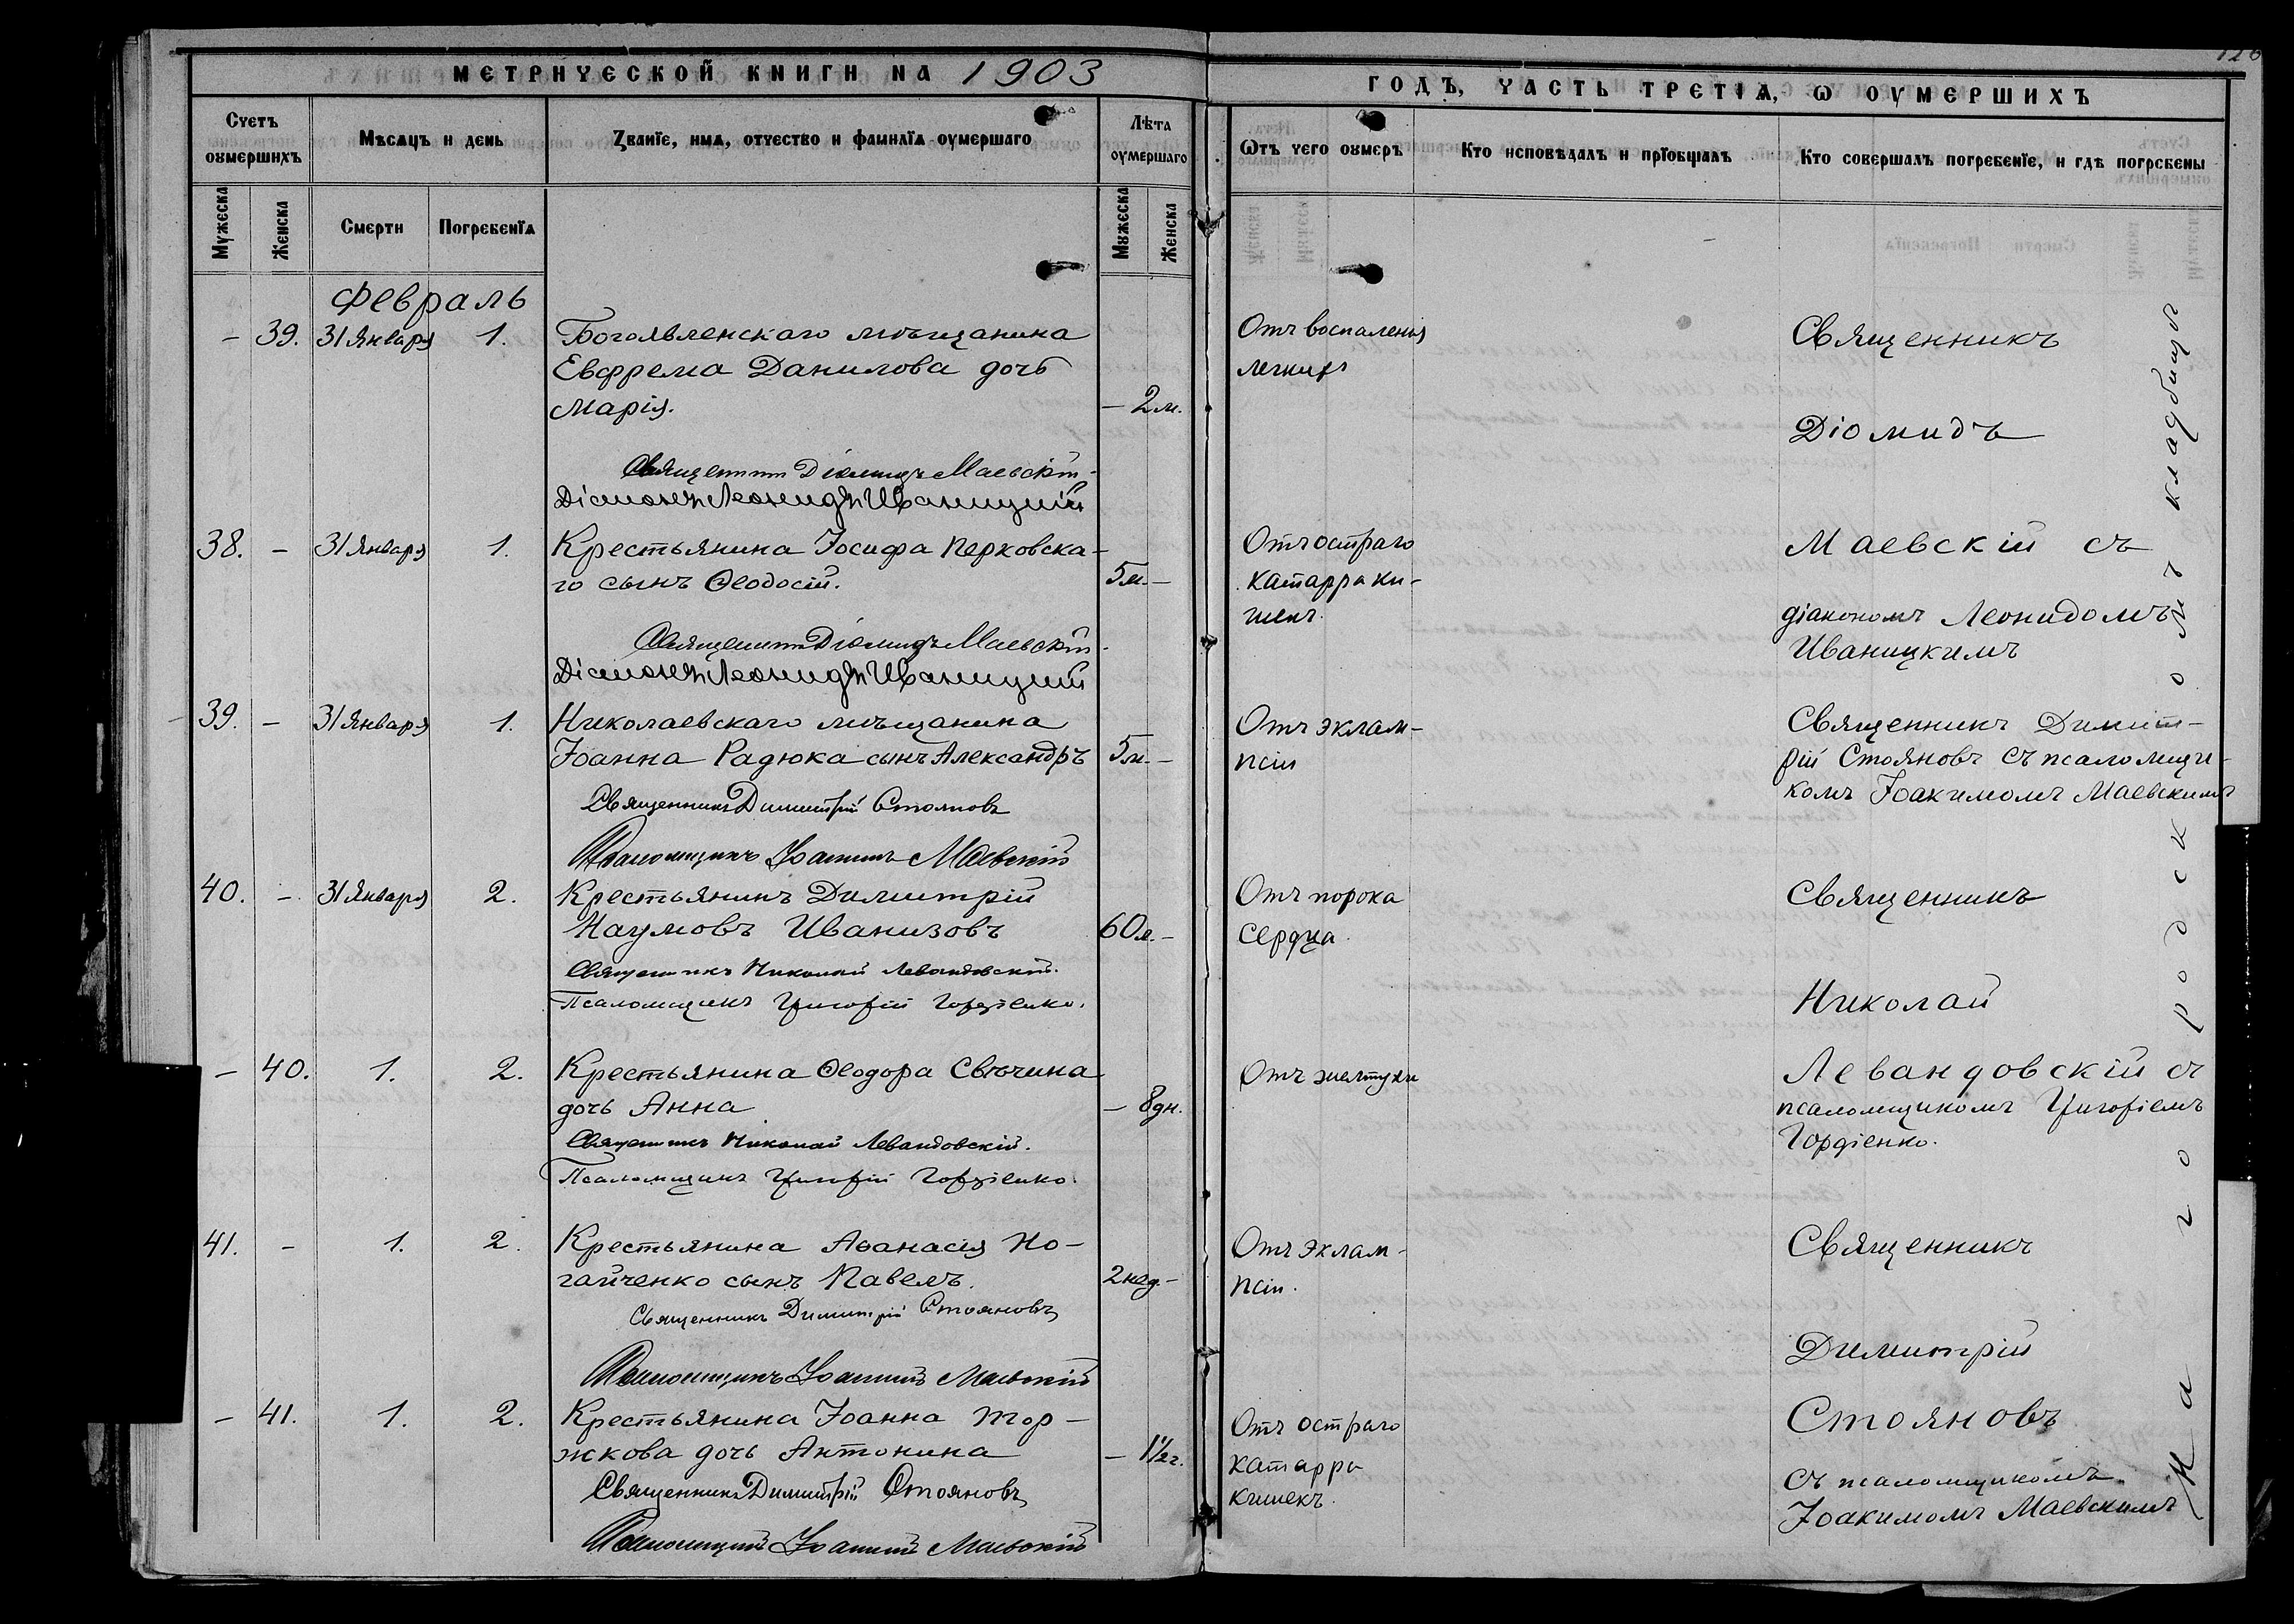 МЕТРИЧЕСКОЙ КНИГИ НА 1903
Счетъ оумершихъ
Мѣсяцъ и день
Званїе, имя, отчество и фамилїя оумершаго
Лѣта оумершаго
Мужеска
Женска
Смерти
Погребенїя
Мужеска
Женска
Февраль
– 39. 31 Января 1. Богоявленскаго мѣщанина
Евфрема Данилова дочь
Марія. – 2 м.
Священникъ Діомидъ Маевскій
Діаконъ Леонидъ Иваницкій
38. – 31 Января 1. Крестьянина Іосифа Перковска-
го сынъ Ѳеодосій. 5 м. –
Священникъ Діомидъ Маевскій
Діаконъ Леонидъ Иваницкій
39. – 31 Января 1. Николаевскаго мѣщанина
Іоанна Радюка сынъ Александръ 5 м. –
Священникъ Димитрій Стояновъ
Псаломщикъ Іоакимъ Маевскій
40. – 31 Января 2. Крестьянинъ Димитрій
Наумовъ Иванизовъ 60 л. –
Священникъ Николай Левандовскій.
Псаломщикъ Григорій Гордіенко.
– 40. 1. 2. Крестьянина Ѳеодора Свѣчина
дочь Анна – 8 дн.
Священникъ Николай Левандовскій.
Псаломщикъ Григорій Гордіенко.
41. – 1. 2. Крестьянина Аѳанасія Но-
гайченко сынъ Павелъ. 2 нед. –
Священникъ Димитрій Стояновъ
Псаломщикъ Іоакимъ Маевскій
– 41. 1. 2. Крестьянина Іоанна Тор-
жкова дочь Антонина – 1½ г.
Священникъ Димитрій Стояновъ
Псаломщикъ Іоакимъ Маевскій
ГОДЪ, ЧАСТЬ ТРЕТІЯ, Ѡ ОУМЕРШИХЪ
Ѿтъ чего оумеръ
Кто исповѣдалъ и прїобщалъ
Кто совершалъ погребенїе, и гдѣ погребены
Отъ воспаленія
легкихъ
Священникъ
Діомидъ
Отъ остраго
катарра ки-
шекъ.
Маевскій съ
діакономъ Леонидомъ
Иваницкимъ
Отъ эклам-
псіи
Священникъ Димит-
рій Стояновъ съ псаломщи-
комъ Іоакимомъ Маевскимъ
Отъ порока
сердца.
Священникъ
Николай
Отъ желтухи
Левандовскій съ
псаломщикомъ Григоріемъ
Гордіенко.
Отъ эклам-
псіи.
Священникъ
Димитрій
Отъ остраго
катарра
кишекъ.
Стояновъ
съ псаломщикомъ
Іоакимомъ Маевскимъ
На городскомъ кладбищѣ